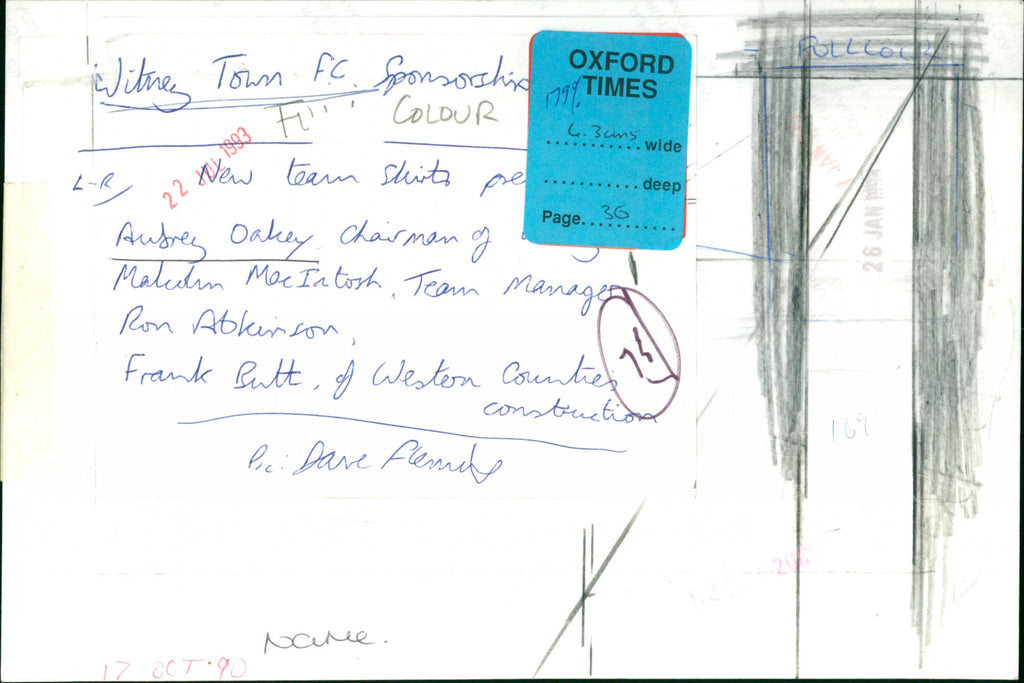 Witney Town FC. Sponsorship
COLOUR
22 JUL 1993
L-R New team shirts
Aubrey Oakey, chairman of
Malcolm MacIntosh, Team Manager
Ron Atkinson,
Frank Butt, of Western Counties
construction
Pic: Dave Fleming
OXFORD
TIMES
179%
4.3cms wide
............ deep
Page...36............
FULL COLOUR
26 JAN
167
NAME.
17 OCT 90